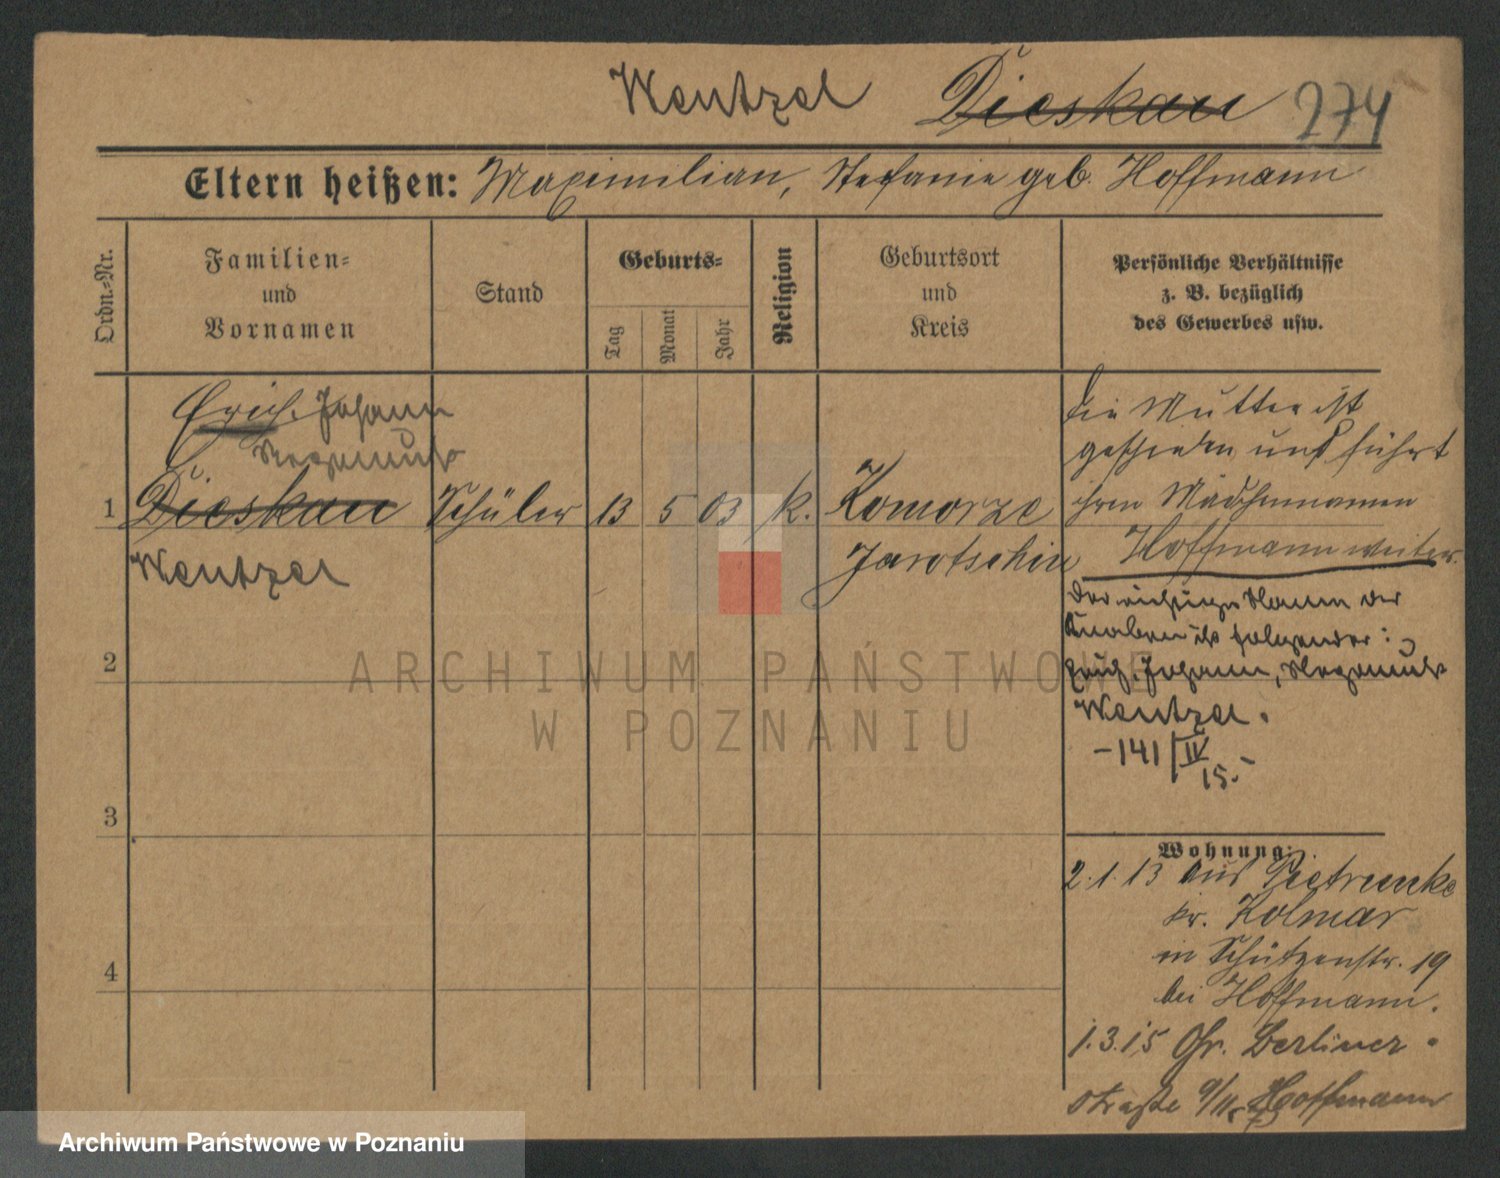 Wentzel Dieskau 274
Eltern heißen: Maximilian, Stefanie geb. Hoffmann
Ordn.=Nr.
Familien=
und
Vornamen
Stand
Geburts=
Tag
Monat
Jahr
Religion
Geburtsort
und
Kreis
Persönliche Verhältnisse
z. B. bezüglich
des Gewerbes usw.
Erich, Johann
1 Dieskau Schüler 13 5 03 k. Komorze
Wentzel
Jarotschin
Die Mutter ist
geschieden und führt
ihren Mädchennamen
Hoffmann weiter.
Der richtige Name des
Knaben ist folgender:
Erich, Johann,
Wentzel.
-141 IV
15.-
2
3
4
Wohnung:
2.1.13 aus Pietrunke
Kr. Kolmar
in Schützenstr. 19
bei Hoffmann.
1.3.15 Gr. Berliner-
straße 9/11 Hoffmann
ARCHIWUM PAŃSTWOWE
W POZNANIU
Archiwum Państwowe w Poznaniu